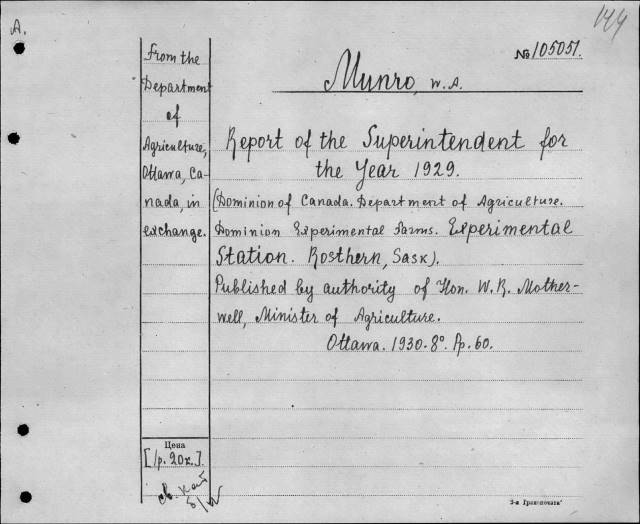 A.
144
№ 105051.
From the
Department
of
Agriculture,
Ottawa, Ca-
nada, in
exchange.
Munro, W. A.
Report of the Superintendent for
the Year 1929.
(Dominion of Canada. Department of Agriculture.
Dominion Experimental Farms. Experimental
Station. Rosthern, Sask).
Published by authority of Hon. W. R. Mother-
well, Minister of Agriculture.
Ottawa. 1930. 8°. Pp. 60.
Цена
[1р. 20к.].
св. кат